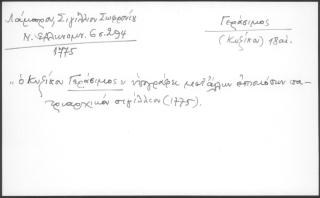 Λάμπρος, Σιγίλλιον Σωφρονίου
Ν. Ελληνομν. 6 σ. 294
1775
Γεράσιμος
(Κυζίκου) 18 αἰ.
"ὁ Κυζίκου Γεράσιμος" ὑπογράφει μετ' ἄλλων ἐπισκόπων πα-
τριαρχικὸν σιγίλλιον (1775).